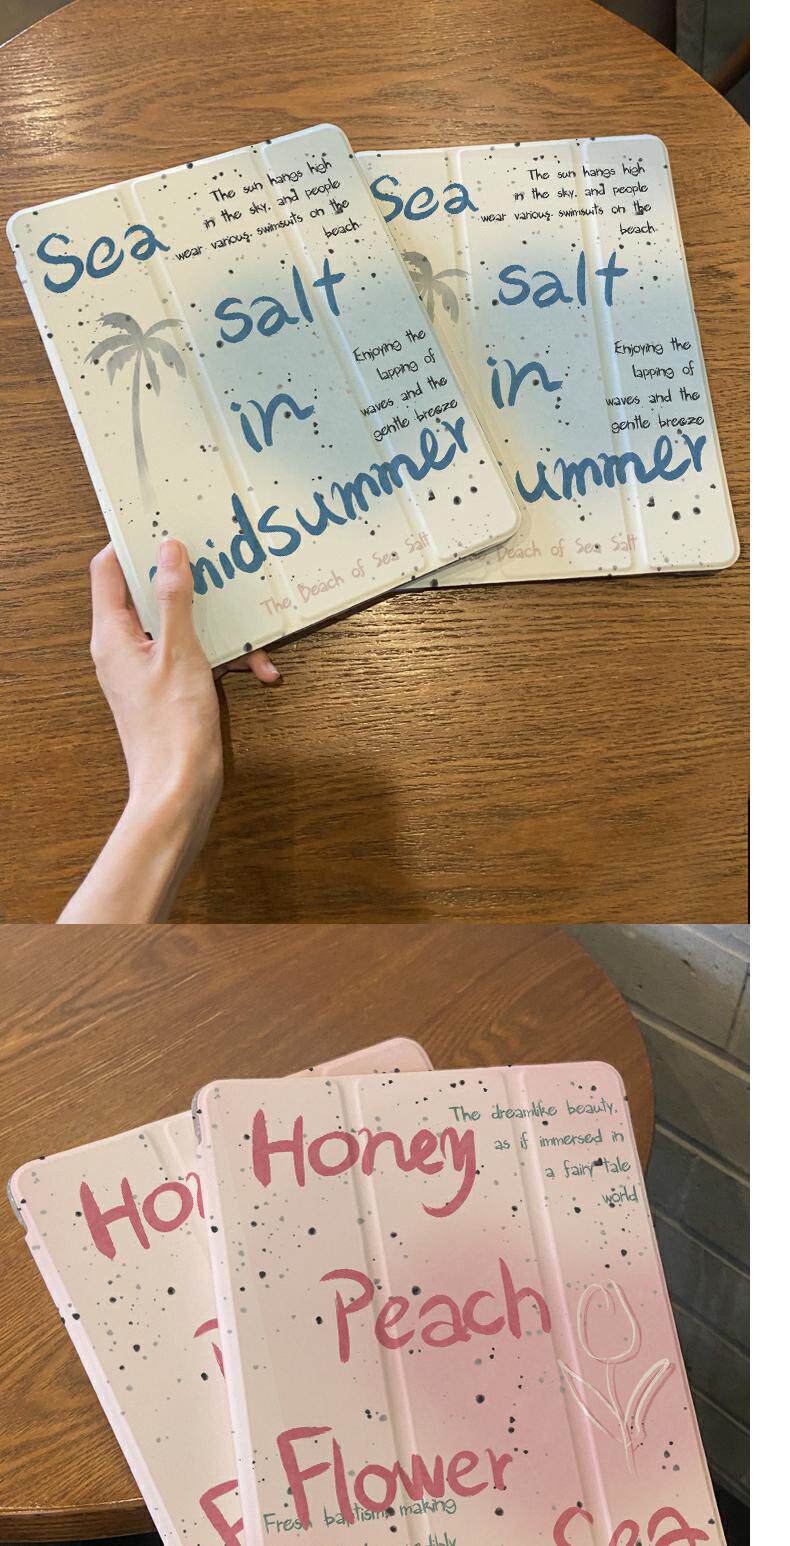 Sea
The sun hangs high
in the sky, and people
wear various swimsuits on the
beach.
salt
in
Enjoying the
lapping of
waves and the
gentle breeze
midsummer
The Beach of Sea Salt
Sea
The sun hangs high
in the sky, and people
wear various swimsuits on the
beach.
salt
in
Enjoying the
lapping of
waves and the
gentle breeze
ummer
Beach of Sea Salt
Hon
Honey
The dreamlike beauty,
as if immersed in
a fairy tale
world
Peach
Flower
Fresh baptism, making
Sea
F